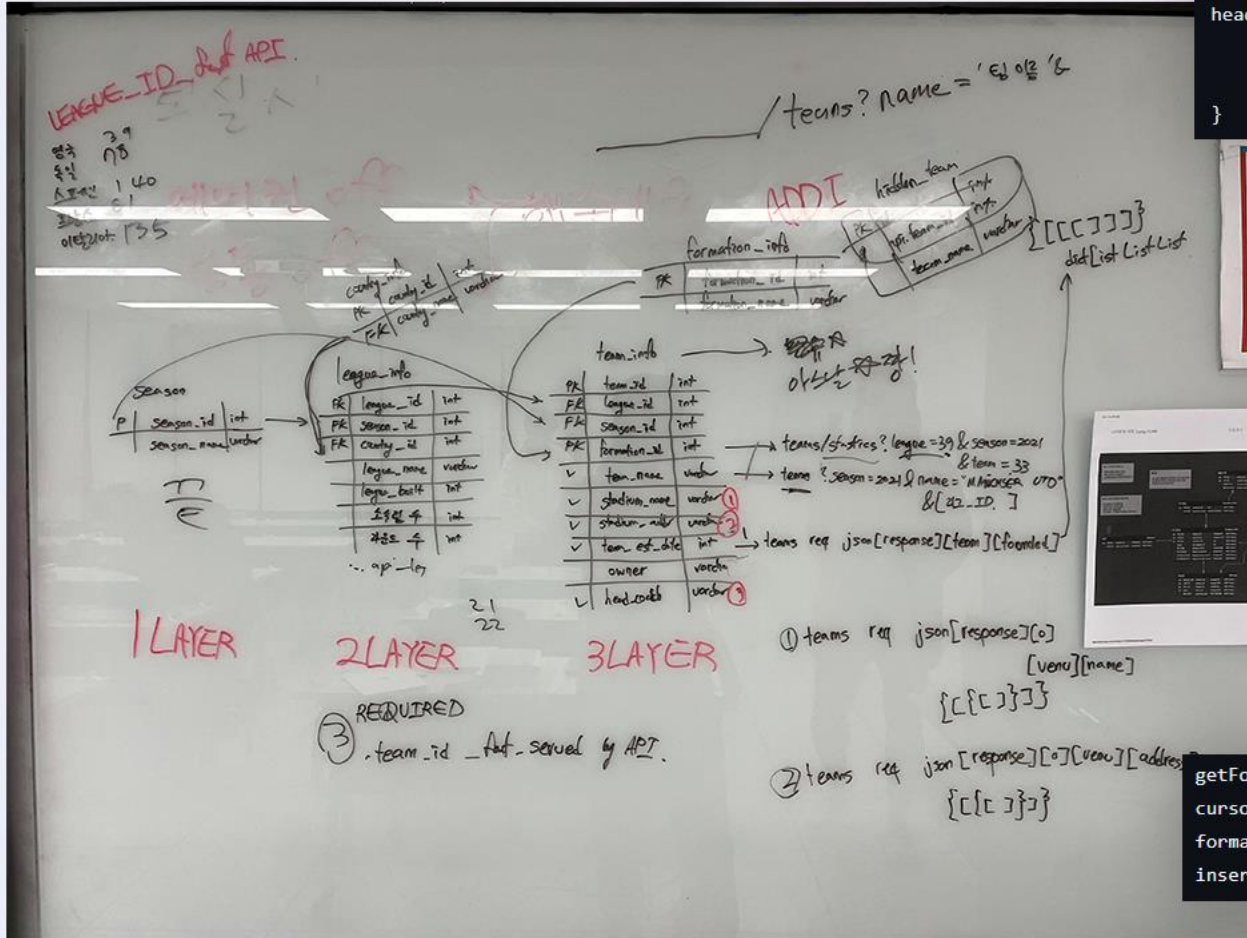 LEAGUE_ID_fast API.
영국 39
독일 78
스페인 140
프랑스 61
이탈리아 135
/teams? name = '팀 이름' &
ADD I
hidden_team
PK int
api_team_ int
team_name varchar
{[[[]]]}
dict List List List
formation_info
PK formation_id int
formation_name varchar
country_info
PK country_id int
FK country_name varchar
season
P season_id int
season_name varchar
league_info
PK league_id int
FK season_id int
FK country_id int
league_name varchar
league_built int
소속팀 수 int
라운드 수 int
team_info
PK team_id int
FK league_id int
FK season_id int
FK formation_id int
V team_name varchar
V stadium_name varchar ①
V stadium_addr varchar ②
V team_est_date int
owner varchar
V head_coach varchar
teams/stastics? league=39 & season=2021
& team = 33
team ? season=2021 & name=
teams req json[response][team][founded]
21
22
1LAYER
2LAYER
3LAYER
① teams req json[response][0]
[venu][name]
{[{[]}]}
② teams req json[response][0][venu][address
{[{[]}]}
③ REQUIRED
.team_id _fast_served by API.
head
}
getFo
curso
forma
inser